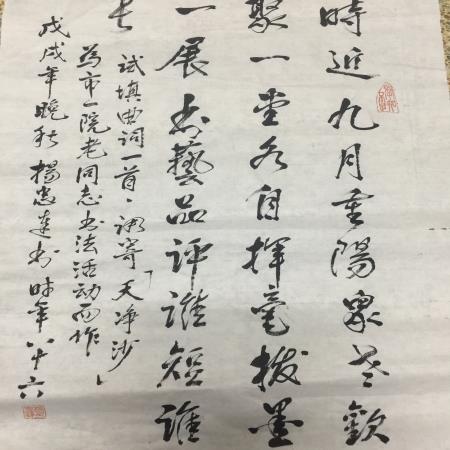 時近九月重陽眾老歡
聚一堂各自揮毫拨墨
一展书藝品评誰短誰
长
試填曲词一首：调寄「天净沙」
為市一院老同志书法活动而作
戊戌年晚秋 楊忠達书 时年八十六